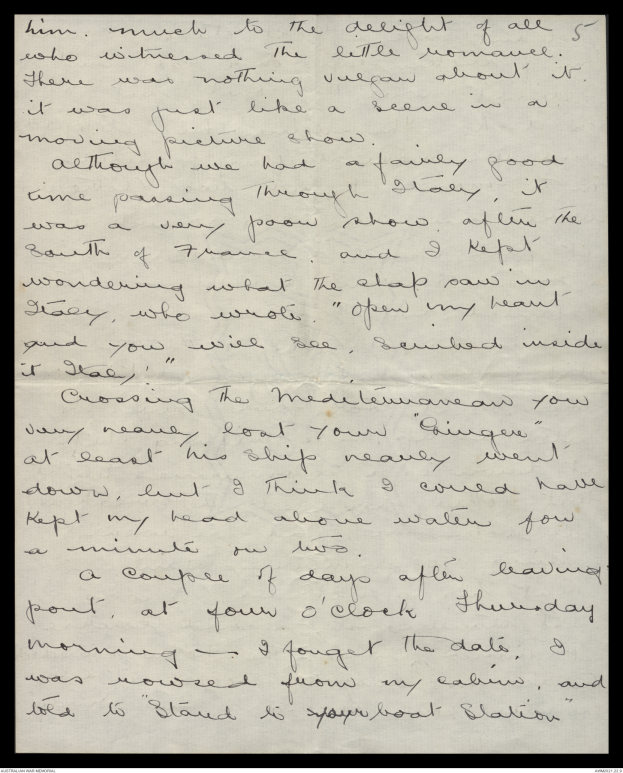 5
him. much to the delight of all
who witnessed the little romance.
There was nothing vulgar about it.
it was just like a scene in a
moving picture show.
Although we had a fairly good
time passing through Italy, it
was a very poor show after the
South of France, and I kept
wondering what the chap saw in
Italy, who wrote. "Open my heart
and you will see, Scribed inside
it Italy."
Crossing the Mediterranean you
very nearly lost your "Ginger"
at least his ship nearly went
down, but I think I could have
kept my head above water for
a minute or two.
A couple of days after leaving
port, at four o'clock Thursday
morning — I forget the date, I
was rowsed from my cabin, and
told to "Stand to your boat Station"
AUSTRALIAN WAR MEMORIAL